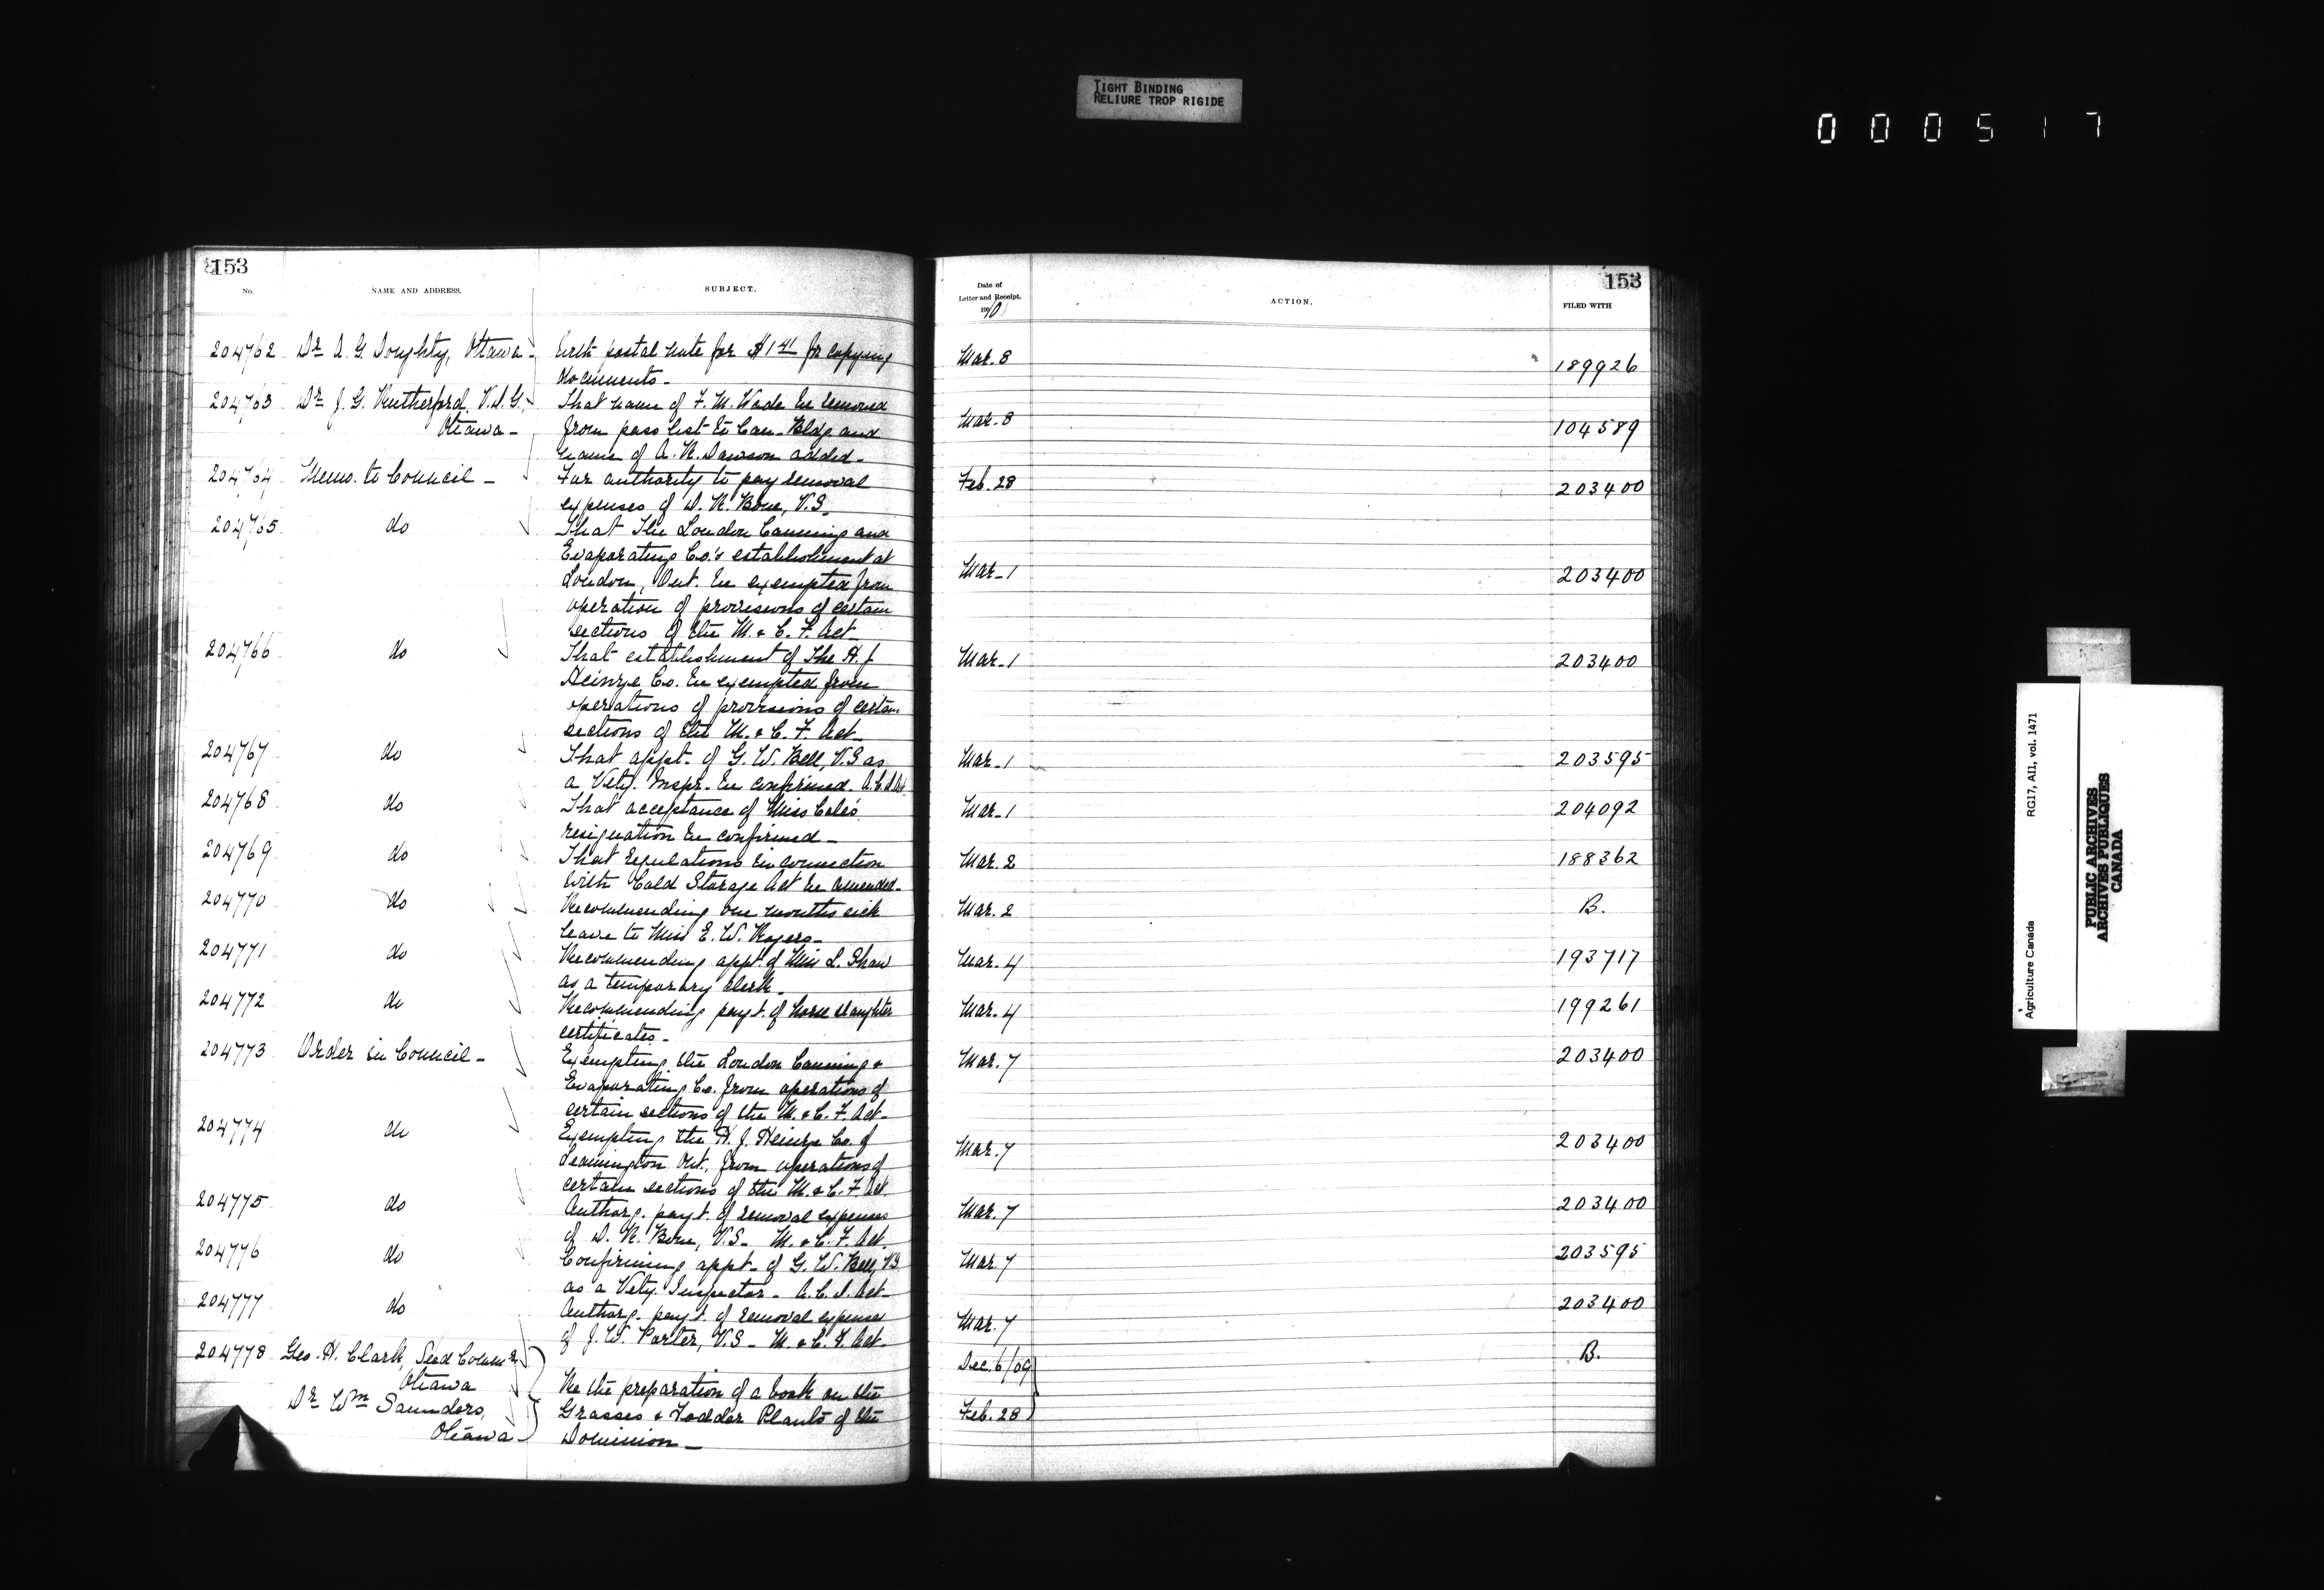 TIGHT BINDING
RELIURE TROP RIGIDE
000517
153
No.
NAME AND ADDRESS.
SUBJECT.
204762 Dr A. G. Doughty, Ottawa - With postal note for $1 41 for copying
documents -
204763 Dr J. G. Rutherford, V.D.G.,
Ottawa -
That name of F. M. Wade be removed
from pass list to Can. Bldg and
name of A. R. Dawson added -
204764 Memo. to Council - For authority to pay removal
expenses of D. R. Bone, V.S.
204765 do That The London Canning and
Evaporating Co.'s establishment at
London, Ont. be exempted from
operation of provisions of certain
sections of the M. & C. F. Act
204766 do That establishment of The H. J.
Heinze Co. be exempted from
operations of provisions of certain
sections of the M. & C. F. Act -
204767 do That appt. of G. W. Bell, V.S as
a Vety. Inspr. be confirmed. A.C.D Act
204768 do That acceptance of Miss Cole's
resignation be confirmed -
204769 do That regulations in connection
with Cold Storage Act be amended -
204770 do Recommending one months sick
leave to Miss E. W. Rogers -
204771 do Recommending appt. of Miss L. Shaw
as a temporary clerk -
204772 do Recommending payt. of horse slaughter
certificates -
204773 Order in Council - Exempting the London Canning &
Evaporating Co. from operations of
certain sections of the M. & C. F. Act -
204774 do Exempting the H. J. Heinze Co. of
Leamington Ont. from operations of
certain sections of the M. & C. F Act.
204775 do Authorg. payt. of removal expenses
of D. R. Bone, V.S - M. & C. F. Act.
204776 do Confirming appt - of G. W. Bell, V.S.
as a Vety. Inspector - A. C. D. Act -
204777 do Authorg. payt. of removal expense
of J. W. Porter, V.S - M. & C. F. Act -
204778 Geo. H. Clark, Seed Commr
Ottawa
Dr Wm Saunders,
Ottawa -
Re the preparation of a book on the
Grasses & Fodder Plants of the
Dominion -
153
Date of
Letter and Receipt.
1910
ACTION.
FILED WITH
Mar. 8 189926
Mar. 8 104589
Feb. 28 203400
Mar - 1 203400
Mar - 1 203400
Mar - 1 203595
Mar - 1 204092
Mar. 2 188362
Mar. 2 B.
Mar. 4 193717
Mar. 4 199261
Mar. 7 203400
Mar. 7 203400
Mar. 7 203400
Mar. 7 203595
Mar. 7 203400
Dec. 6/09 B.
Feb. 28
Agriculture Canada RG17, AII, vol. 1471
PUBLIC ARCHIVES
ARCHIVES PUBLIQUES
CANADA